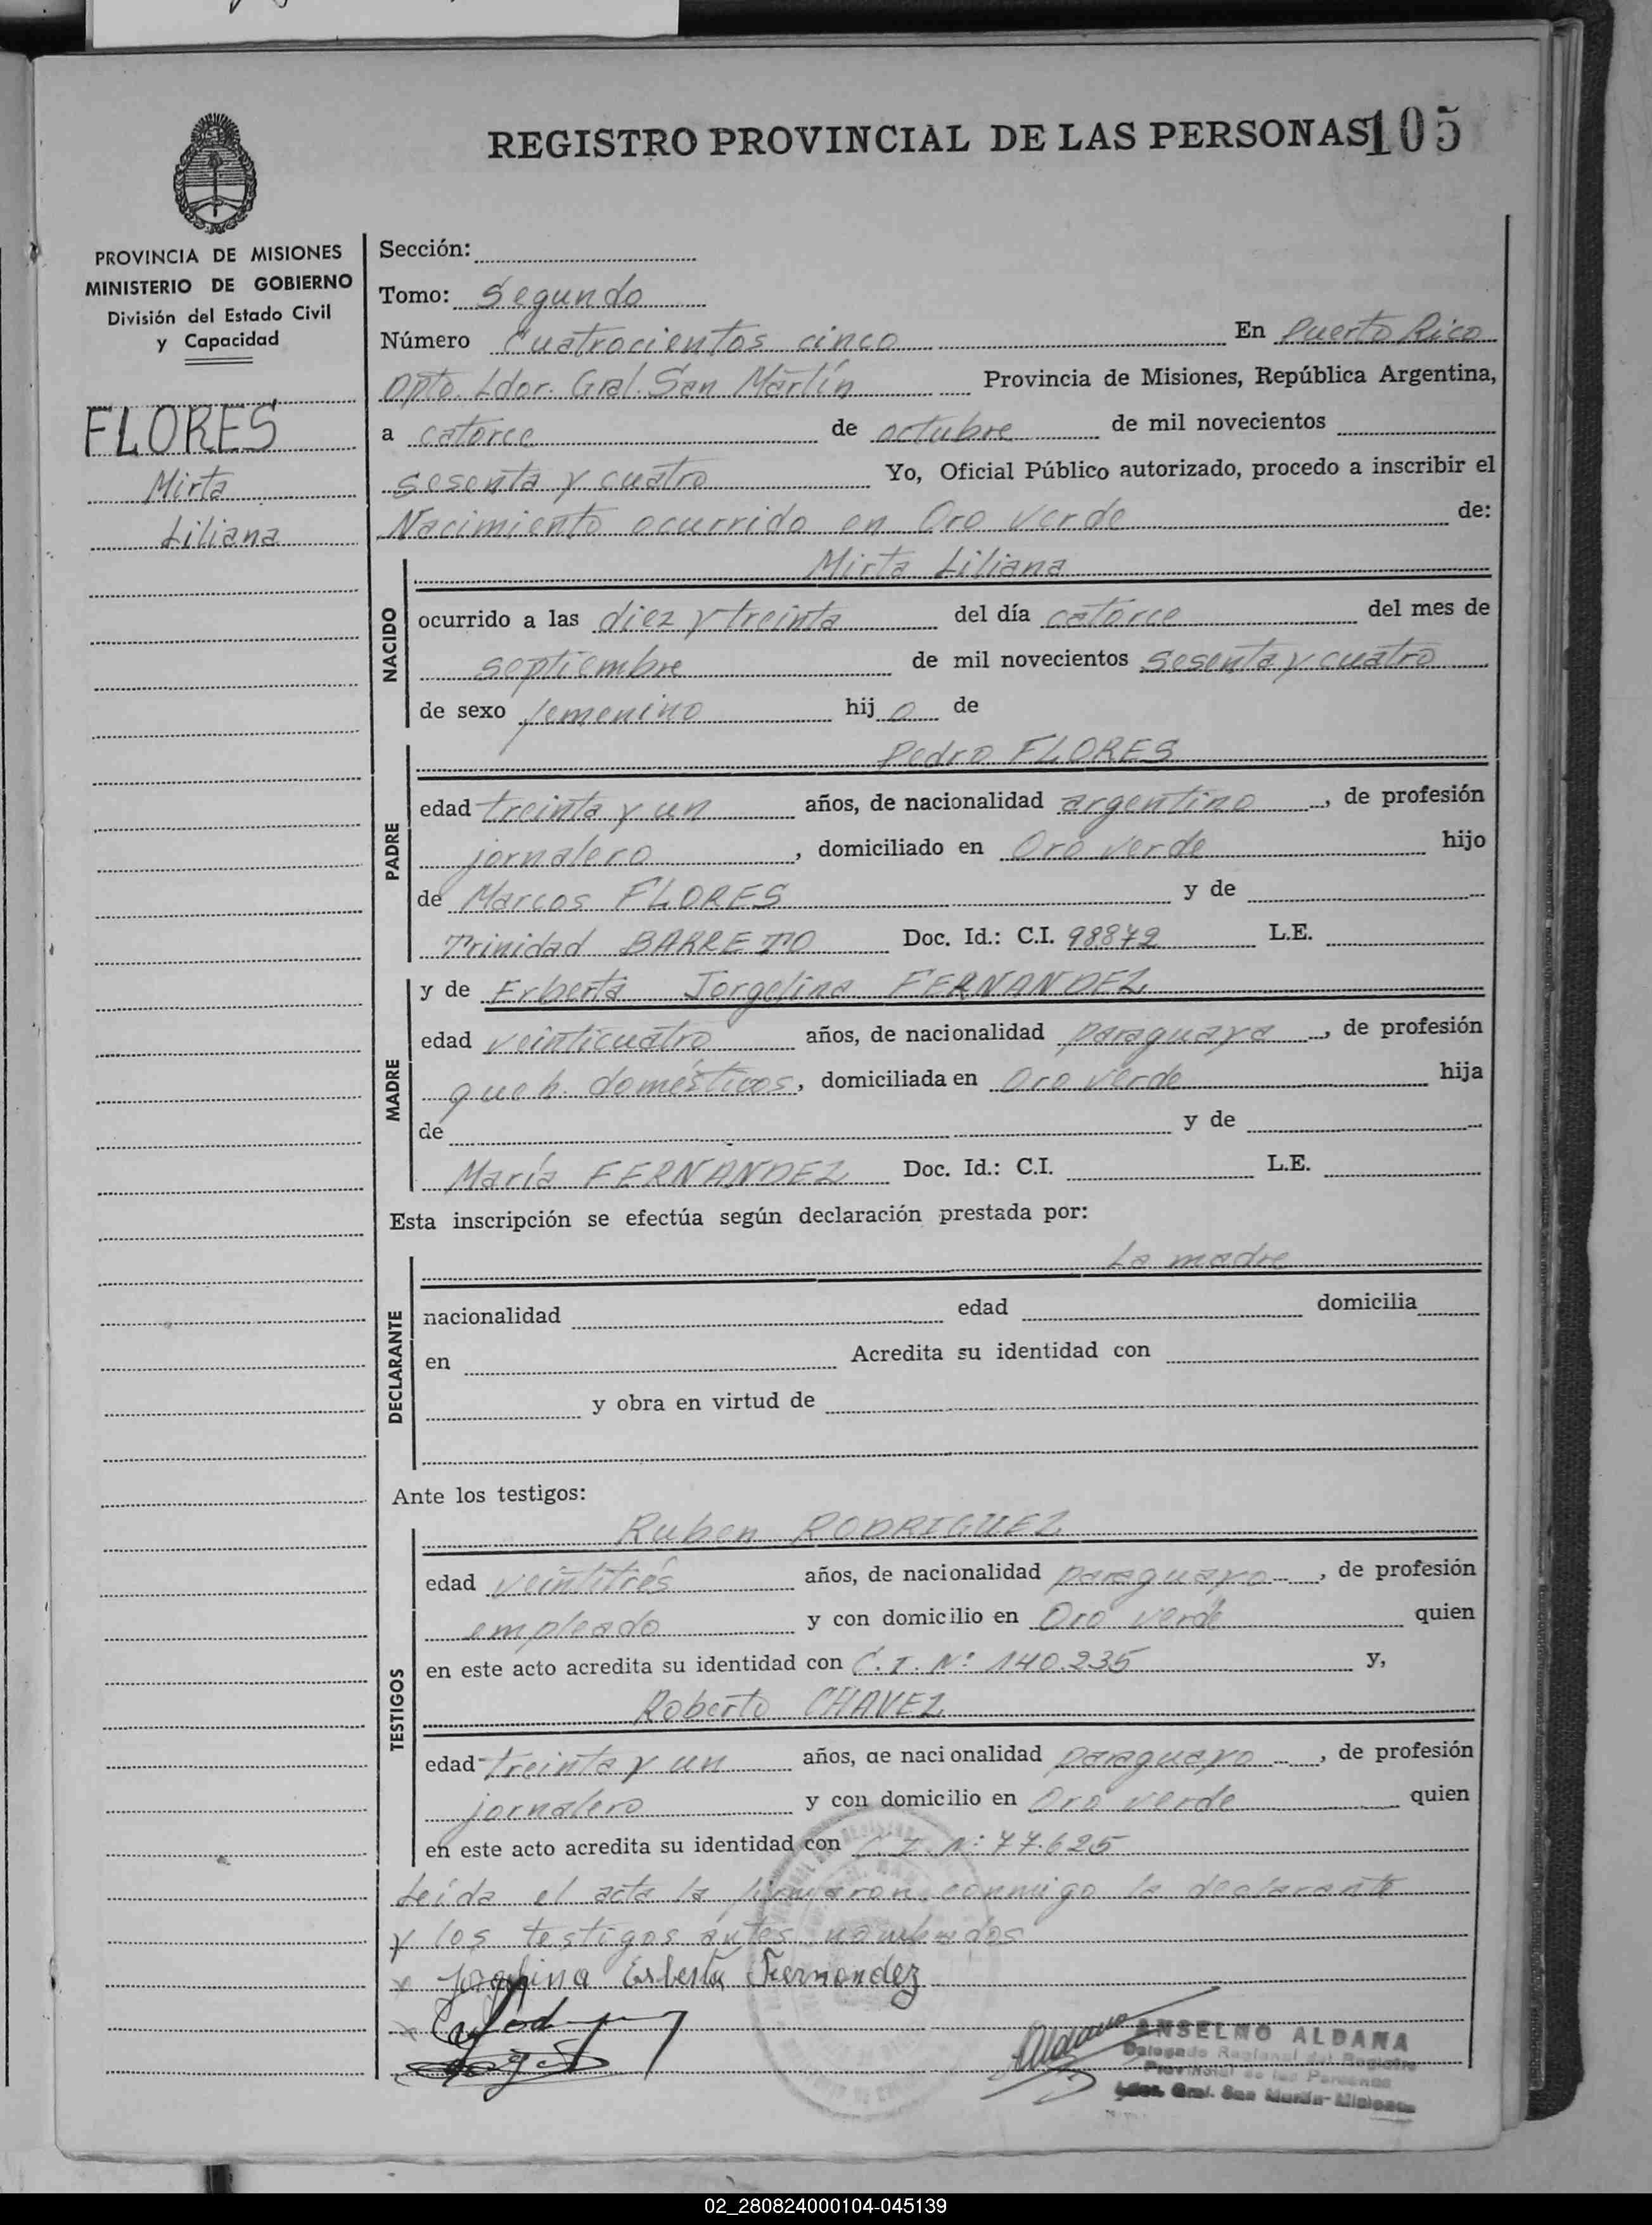 REGISTRO PROVINCIAL DE LAS PERSONAS 105
PROVINCIA DE MISIONES
MINISTERIO DE GOBIERNO
División del Estado Civil
y Capacidad
FLORES
Mirta
Liliana
Sección:
Tomo: Segundo
Número Cuatrocientos cinco En Puerto Rico
Dpto. Ldor. Gral. San Martín Provincia de Misiones, República Argentina,
a catorce de octubre de mil novecientos
sesenta y cuatro Yo, Oficial Público autorizado, procedo a inscribir el
Nacimiento ocurrido en Oro Verde de:
NACIDO
Mirta Liliana
ocurrido a las diez y treinta del día catorce del mes de
septiembre de mil novecientos sesenta y cuatro
de sexo femenino hij o de
PADRE
Pedro FLORES
edad treinta y un años, de nacionalidad argentino, de profesión
jornalero, domiciliado en Oro Verde hijo
de Marcos FLORES y de
Trinidad BARRETO Doc. Id.: C.I. 98872 L.E.
MADRE
y de Erberta Jorgelina FERNANDEZ
edad veinticuatro años, de nacionalidad paraguaya, de profesión
queh. domésticos, domiciliada en Oro Verde hija
de y de
María FERNANDEZ Doc. Id.: C.I. L.E.
Esta inscripción se efectúa según declaración prestada por:
DECLARANTE
La madre
nacionalidad edad domicilia
en Acredita su identidad con
y obra en virtud de
Ante los testigos:
TESTIGOS
Ruben RODRIGUEZ
edad veintitrés años, de nacionalidad paraguayo, de profesión
empleado y con domicilio en Oro Verde quien
en este acto acredita su identidad con C.I. Nº 140.235 y,
Roberto CHAVEZ
edad treinta y un años, de nacionalidad paraguayo, de profesión
jornalero y con domicilio en Oro Verde quien
en este acto acredita su identidad con C.I. Nº 77.625
Leída el acta la firmaron conmigo la declarante
y los testigos antes nombrados
x Jorgelina Erberta Fernandez
x
Aldana
ANSELMO ALDANA
Delegado Regional del Registro
Provincial de las Personas
Ldor. Gral. San Martín-Misiones
02_280824000104-045139